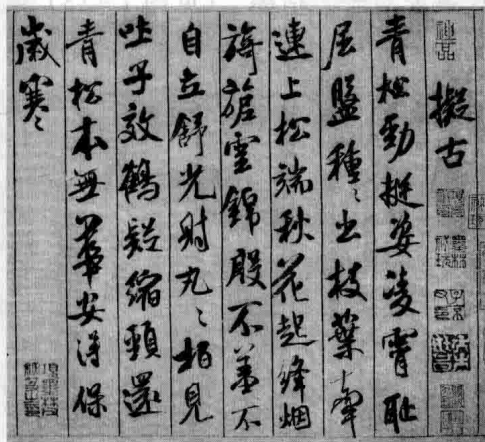 神品
擬古
青松勁挺姿凌霄恥
屈盤種〻出枝葉牽
連上松端秋花起絳烟
旖旎雲錦殷不羞不
自立舒光射丸〻柏見
吐子效鶴疑縮頸還
青松本無華安得保
歲寒